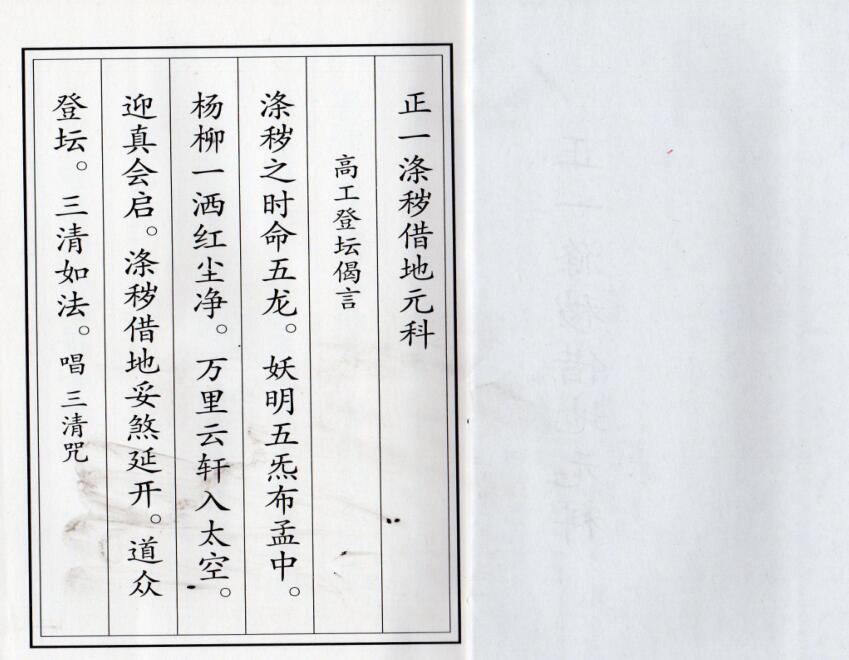 正一涤秽借地元科
高工登坛偈言
涤秽之时命五龙。妖明五炁布孟中。
杨柳一洒红尘净。万里云轩入太空。
迎真会启。涤秽借地妥煞延开。道众
登坛。三清如法。唱 三清咒
正一涤秽借地元科